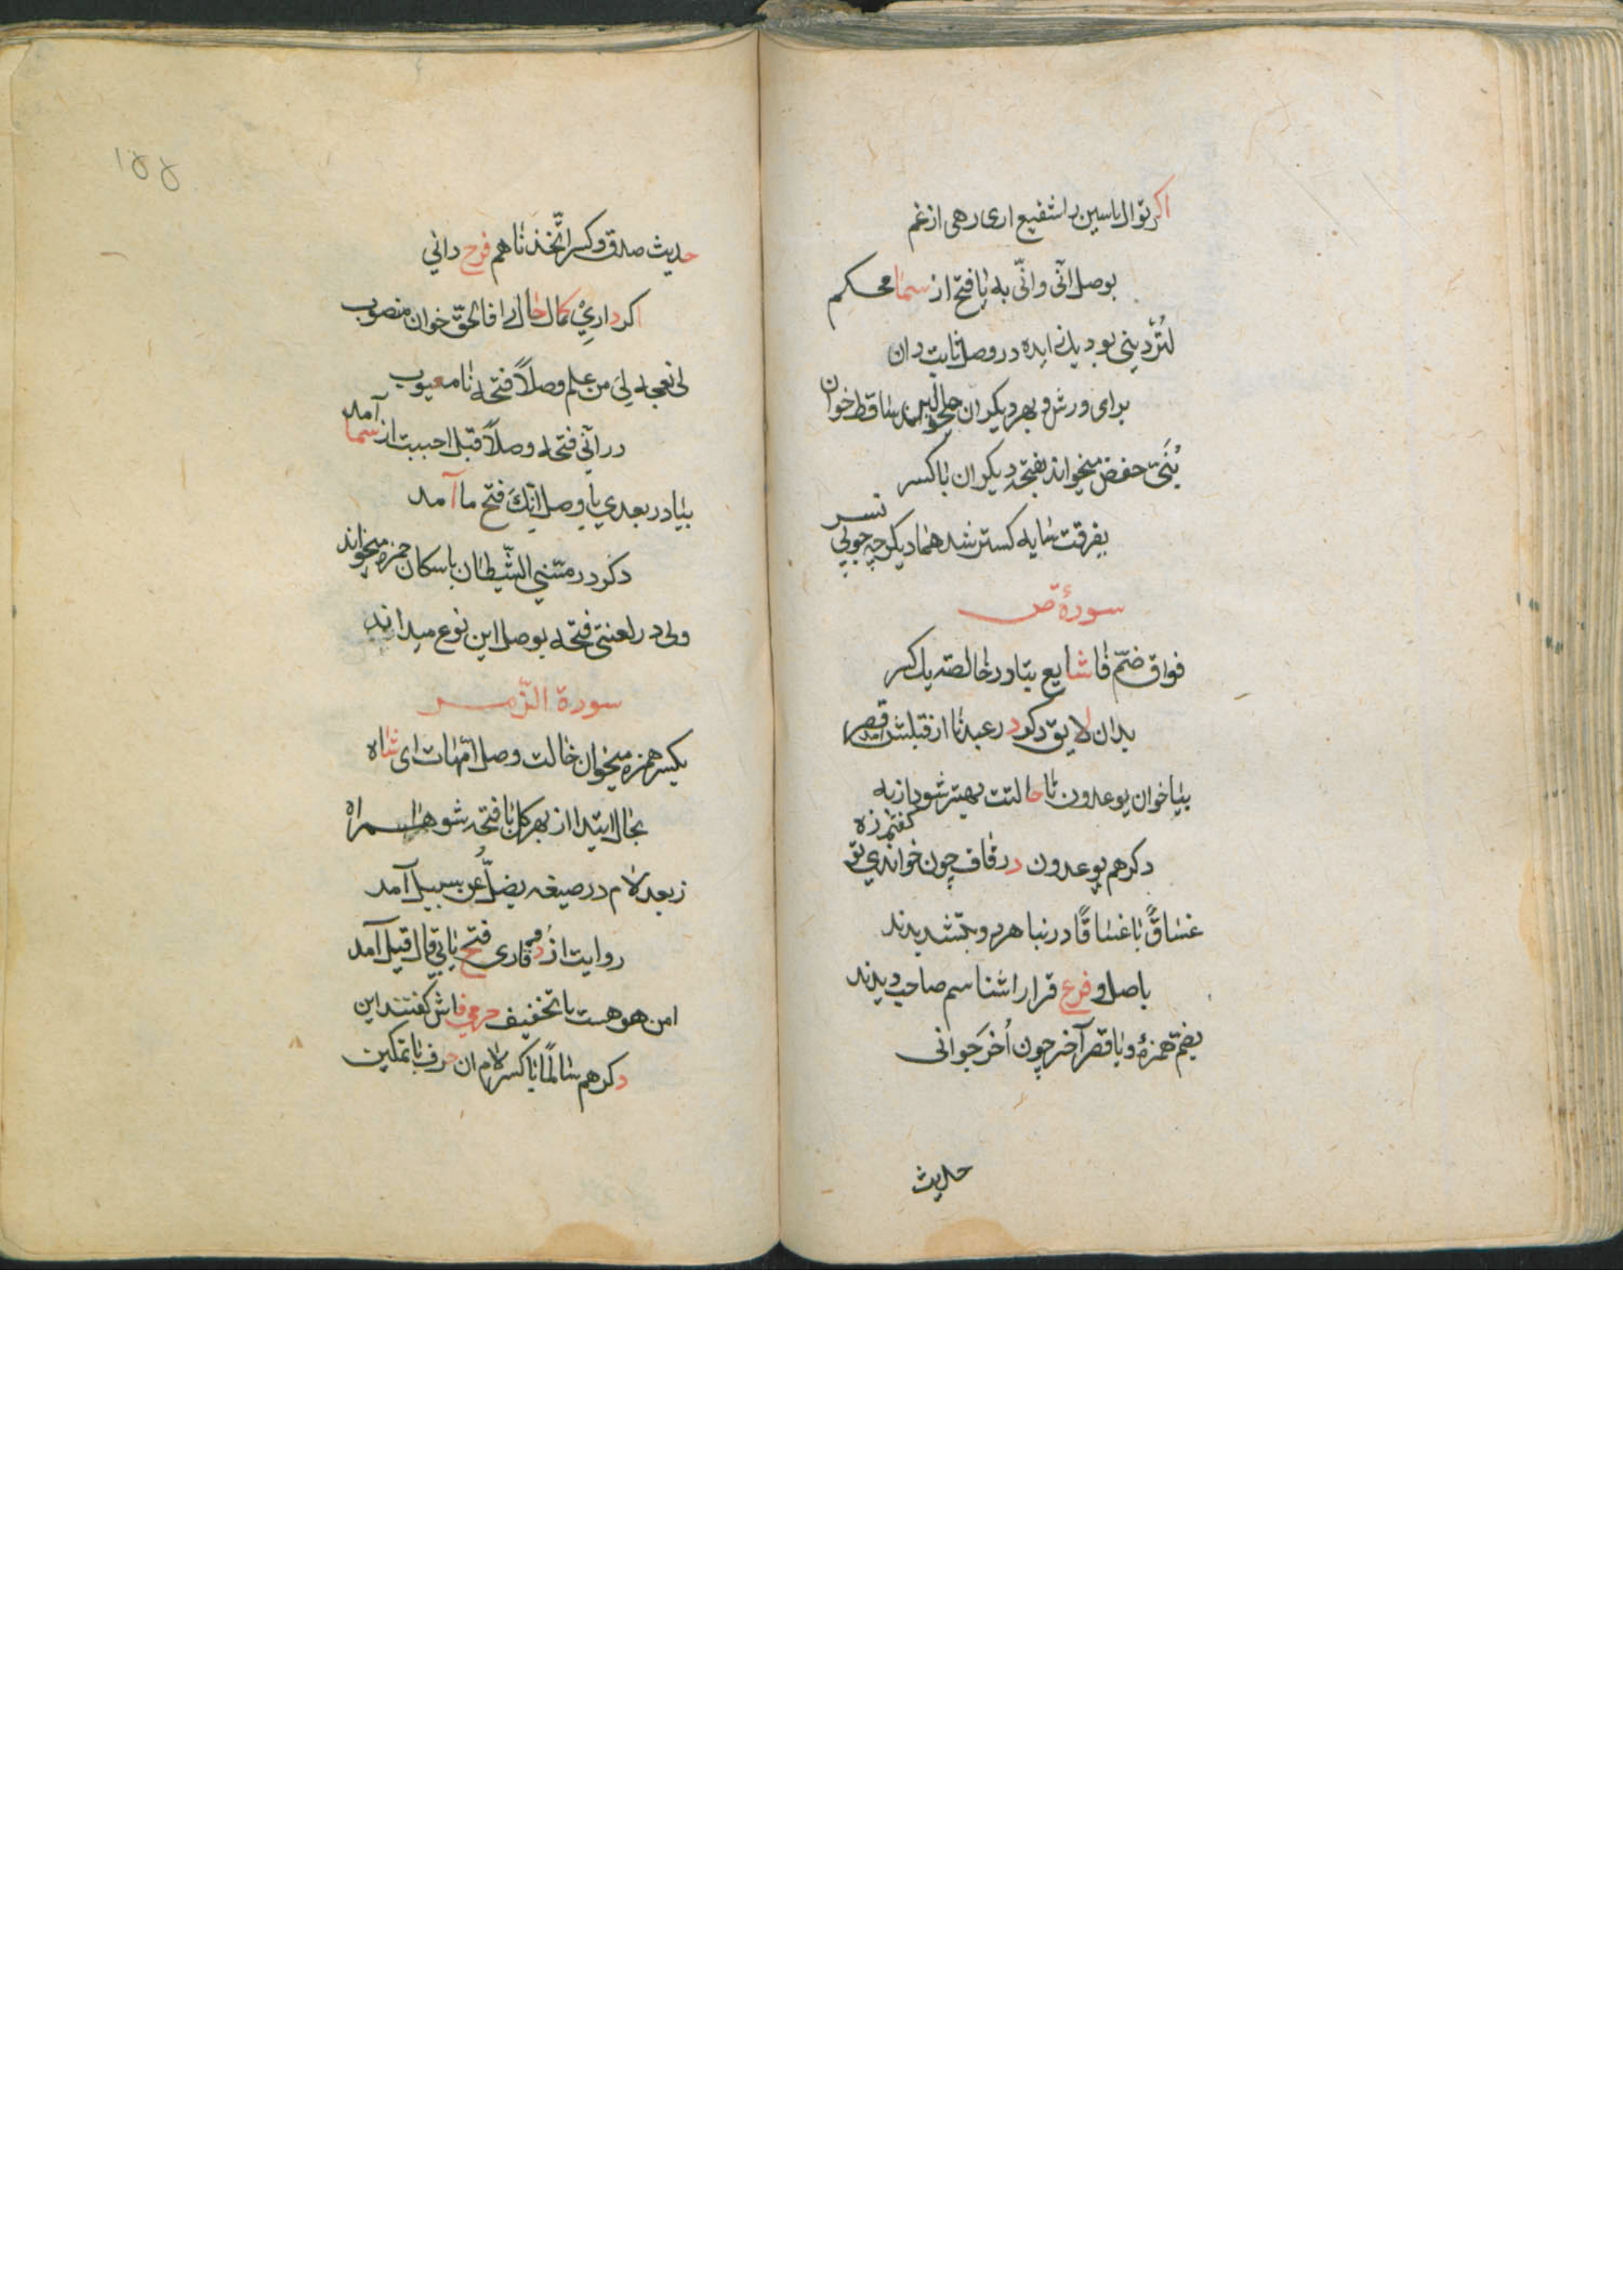 اگر تو ال یاسین را شفیع اری رهی از غم
بوصل انّی وانّی به یا فتح از سما محکم
لتُردینی بود یک زایده در وصل ثابت دان
برای ورش و بهر دیگران ساقط خوان
بُنَیَّ حفص میخواند بفتحه دیگران با کسر
بفرقت سایه گستر شد هما دیگر چه جویی نسر
سورهٔ ص
فواق ضمّ فا شایع بیا در خالصه یک کسر
بدان لایق دکر در عبدنا از قبلش آمد قصر
بیا خوان یوعدون تا حالتت بهتر شود از به
دکر هم یوعدون در قاف چون خواندی تو گفتم زه
غساقٌ با غساقًا در نبا هر دو بتشدیدند
باصل و فرع قرار اشناسم صاحب دیدند
بضم همزهٔ و با قصر آخر چون اُخَر خوانی
حدیث
۱۵۵
حدیث صدق و کسر اتّخذنا هم فرح دانی
اکر داری کمال حال را فالحق خوان منصوب
لی نعجه لی من علم وصلاً فتحه نا معیوب
در انّی فتحه وصلاً قبل احببت از سما آمد
بیا در بعدی یا وصل انّکَ فتح ما آمد
دکر در مسّنی الشّیطان باسکان حمزه میخواند
ولی در لعنتی فتحه بوصل این نوع میداند
سورة الزّمر
بکسر همزه میخوان حالت وصل امّهات ای شاه
بحال ابتدا از بهر کل با فتحه شو همراه
ز بعد لام در صیغه یضلّ عن سبیل آمد
روایت از دو قاری فتح یا بی قال قیل آمد
امن هو هست با تخفیف حرمی فاش گفتند این
دکر هم سالمًا با کسر لام ان حرف با تمکین